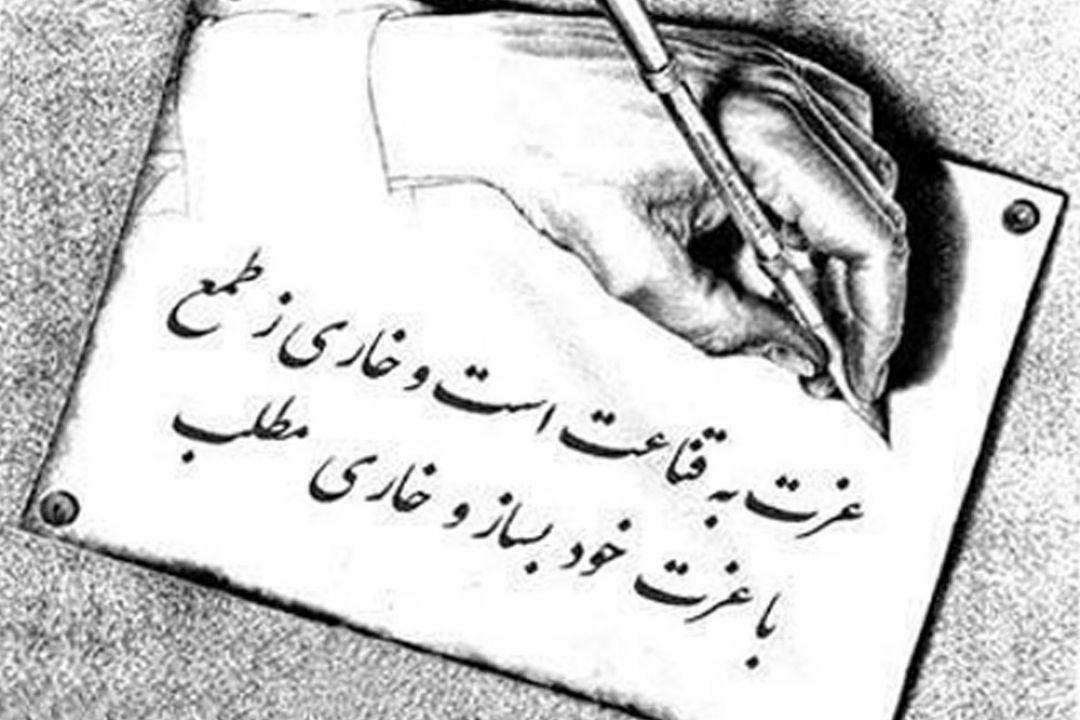 عزت به قناعت است و خاری ز طمع
با عزت خود بساز و خاری مطلب